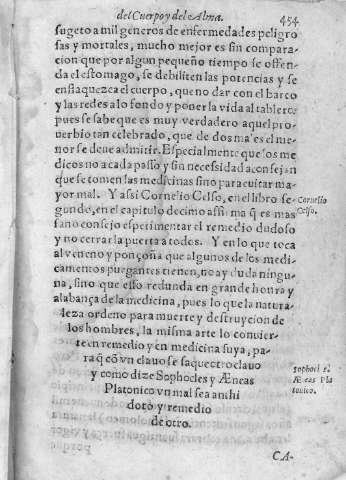 del Cuerpo y del Alma.
454
sugeto a mil generos de enfermedades peligro
sas y mortales, mucho mejor es sin compara-
cion que por algun pequeño tiempo se offen-
da el estomago, se debiliten las potencias y se
enflaquezca el cuerpo, que no dar con el barco
y las redes a lo fondo y poner la vida al tablero:
pues se sabe que es muy verdadero aquel pro-
uerbio tan celebrado, que de dos males el me-
nor se deue admitir. Especialmente que los me
dicos no a cada passo y sin necesidad aconsejan
que se tomen las medicinas sino para euitar ma-
yor mal. Y assi Cornelio Celso, en el libro se-
gundo, en el capitulo decimo affirma q̃ es mas
Cornelio
Celso.
sano consejo esperimentar el remedio dudoso
y no cerrar la puerta a todos. Y en lo que toca
al veneno y ponçoña que algunos de los medi-
camentos purgantes tienen, no ay duda ningu-
na, sino que esso redunda en grande honra y
alabança de la medicina, pues lo que la natura-
leza ordeno para muerte y destruycion de
los hombres, la misma arte lo conuier-
te en remedio y en medicina suya, pa-
ra q̃ cõ vn clauo se saque otro clauo
y como dize Sophocles y Æneas
Platonico vn mal sea anthi
doto y remedio
de otro.
Æneas Pla
tonico.
CA-